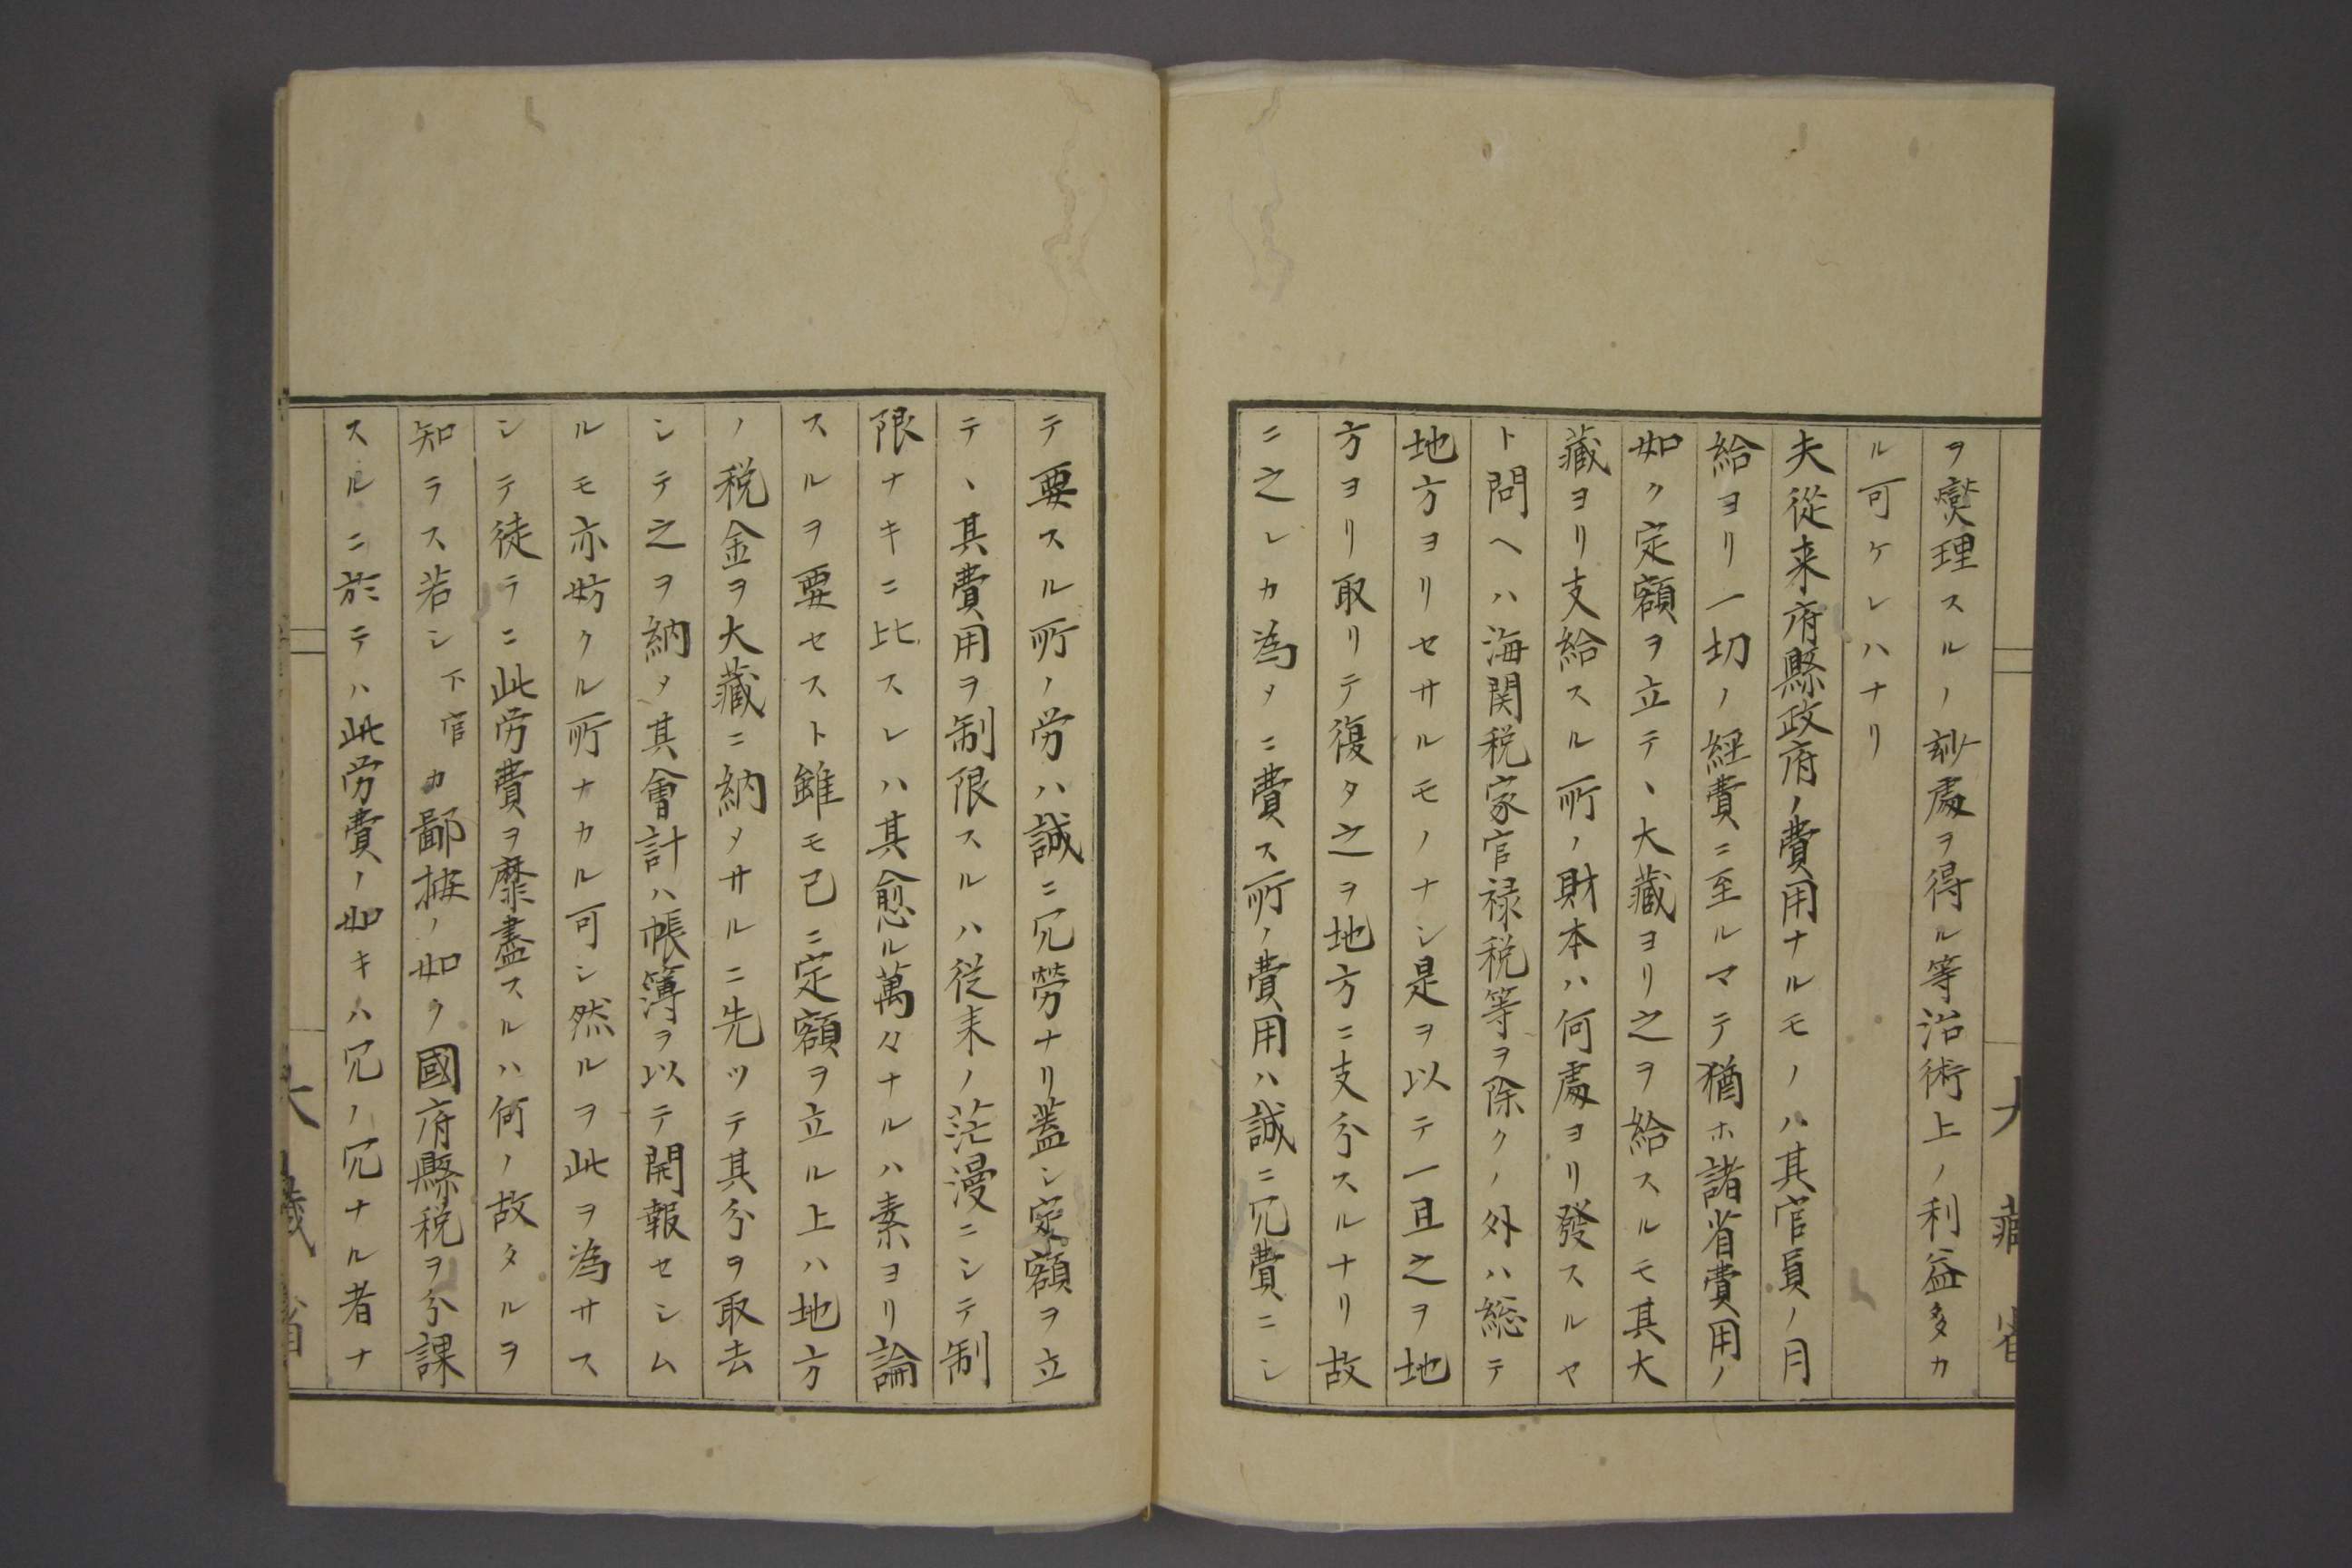 ヲ燮理スルノ玅處ヲ得ル等治術上ノ利益多カ
ル可ケレハナリ
夫従来府縣政府ノ費用ナルモノハ其官員ノ月
給ヨリ一切ノ経費ニ至ルマテ猶ホ諸省費用ノ
如ク定額ヲ立テヽ大藏ヨリ之ヲ給スルモ其大
藏ヨリ支給スル所ノ財本ハ何處ヨリ發スルヤ
ト問ヘハ海関税家官禄税等ヲ除クノ外ハ総テ
地方ヨリセサルモノナシ是ヲ以テ一旦之ヲ地
方ヨリ取リテ復タ之ヲ地方ニ支分スルナリ故
ニ之レカ為メニ費ス所ノ費用ハ誠ニ冗費ニシ
テ要スル所ノ労ハ誠ニ冗勞ナリ蓋シ定額ヲ立
テヽ其費用ヲ制限スルハ従来ノ茫漫ニシテ制
限ナキニ比スレハ其愈ル萬々ナルハ素ヨリ論
スルヲ要セスト雖モ已ニ定額ヲ立ル上ハ地方
ノ税金ヲ大藏ニ納メサルニ先ツテ其分ヲ取去
シテ之ヲ納メ其會計ハ帳簿ヲ以テ開報セシム
ルモ亦妨クル所ナカル可シ然ルヲ此ヲ為サス
シテ徒ラニ此労費ヲ靡盡スルハ何ノ故タルヲ
知ラス若シ下官カ鄙按ノ如ク國府縣税ヲ分課
スルニ於テハ此労費ノ如キハ冗ノ冗ナル者ナ
大藏省